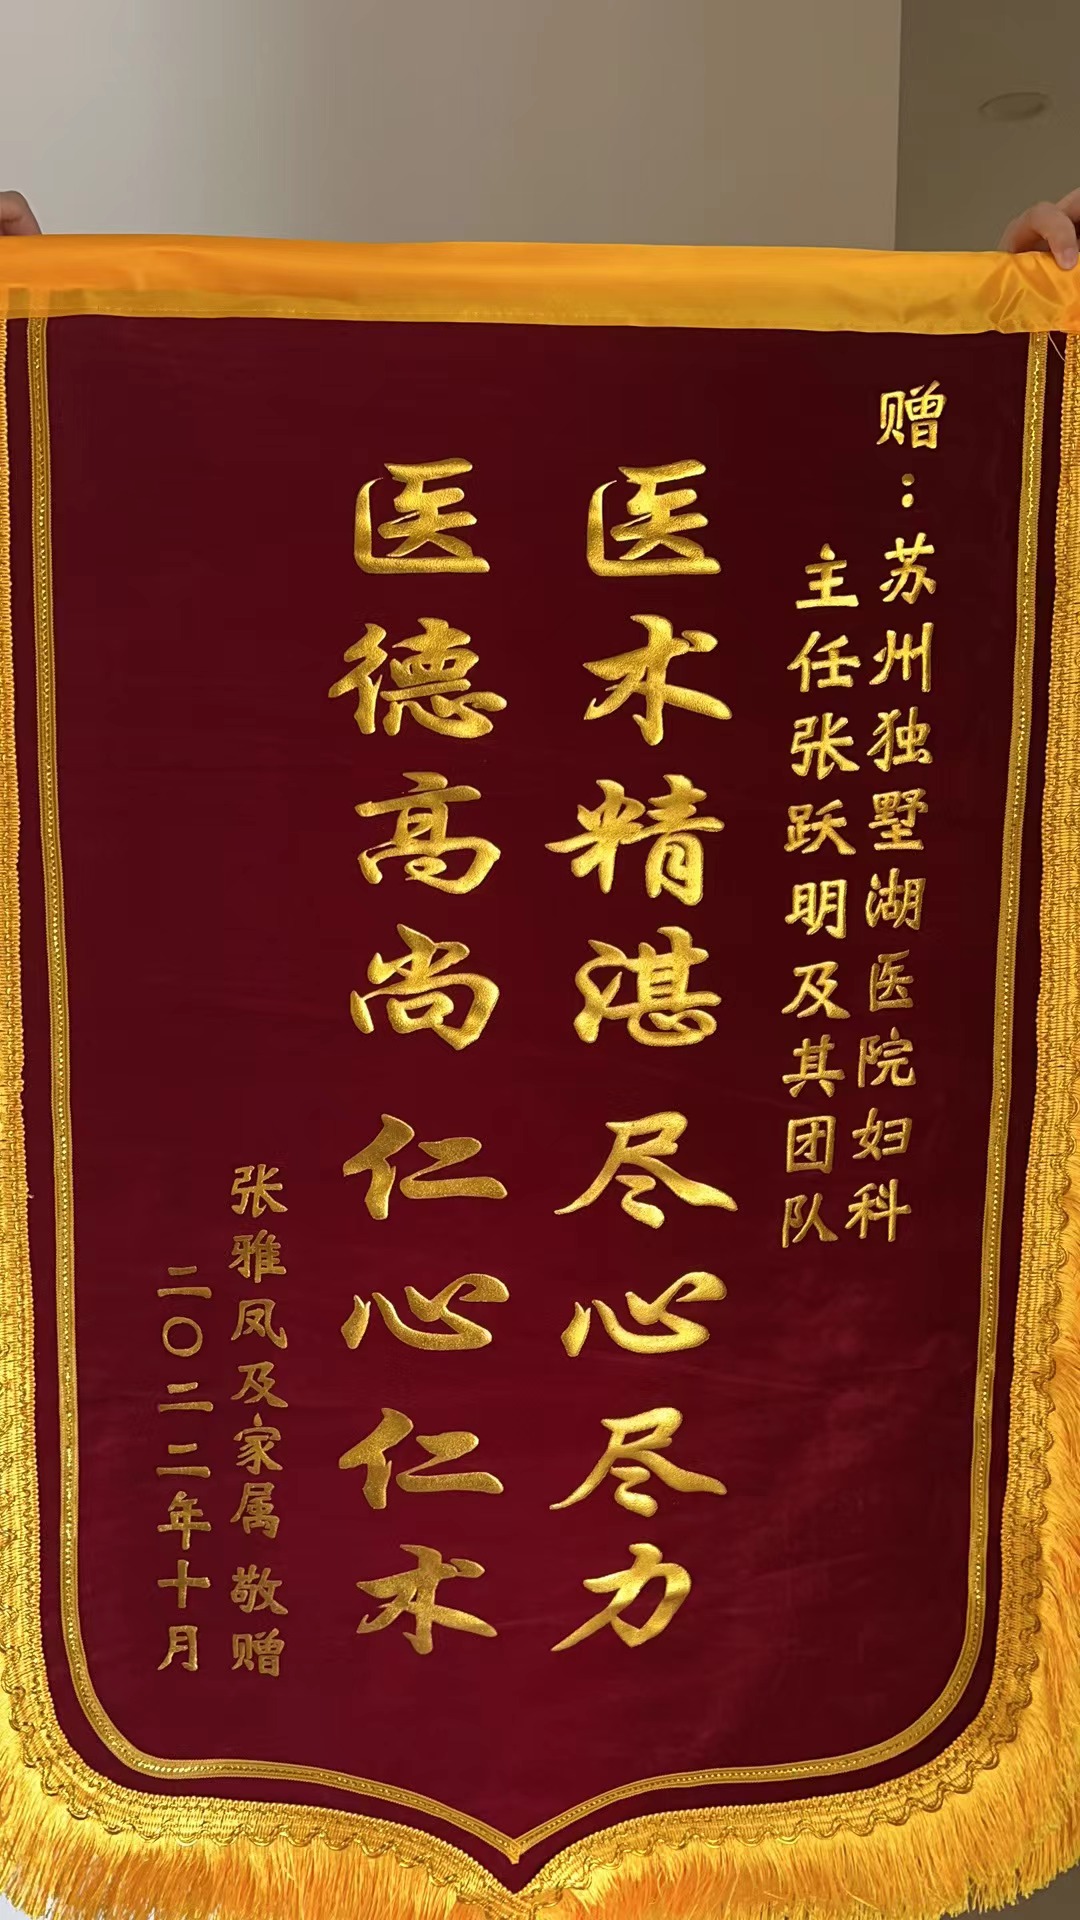 赠：苏州独墅湖医院妇科
主任张跃明及其团队
医术精湛 尽心尽力
医德高尚 仁心仁术
张雅凤及家属 敬赠
二〇二二年十月